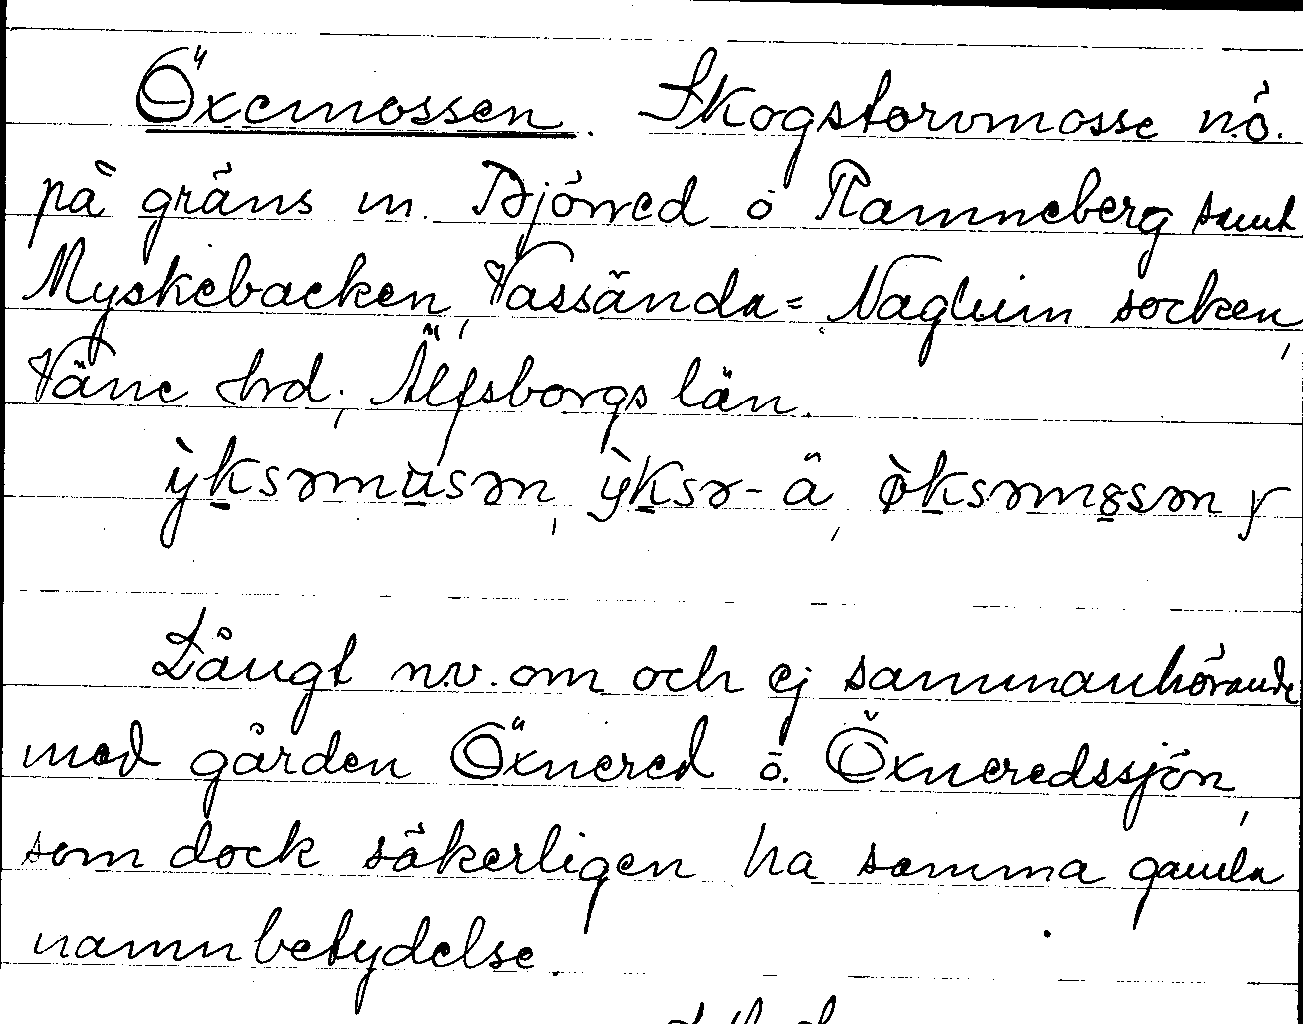 Öxemossen. Skogstorvmosse n.ö.
på gräns m. Björred o Ramneberg samt
Myskebacken, Vassända= Naglum socken,
Väne hrd; Älfsborgs län.
ỳksəmusən, ỳksə- å, ø̀ksəmɵsən
Långt n.v. om och ej sammanhörande
med gården Öxnered o. Öxneredssjön,
som dock säkerligen ha samma gamla
namnbetydelse.